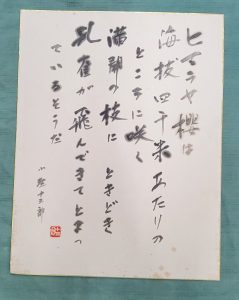 ヒマラヤ櫻は
海抜四千米あたりの
ところに咲く
満開の枝にときどき
孔雀が飛んできてとまっ
ているそうだ
小野十三郎